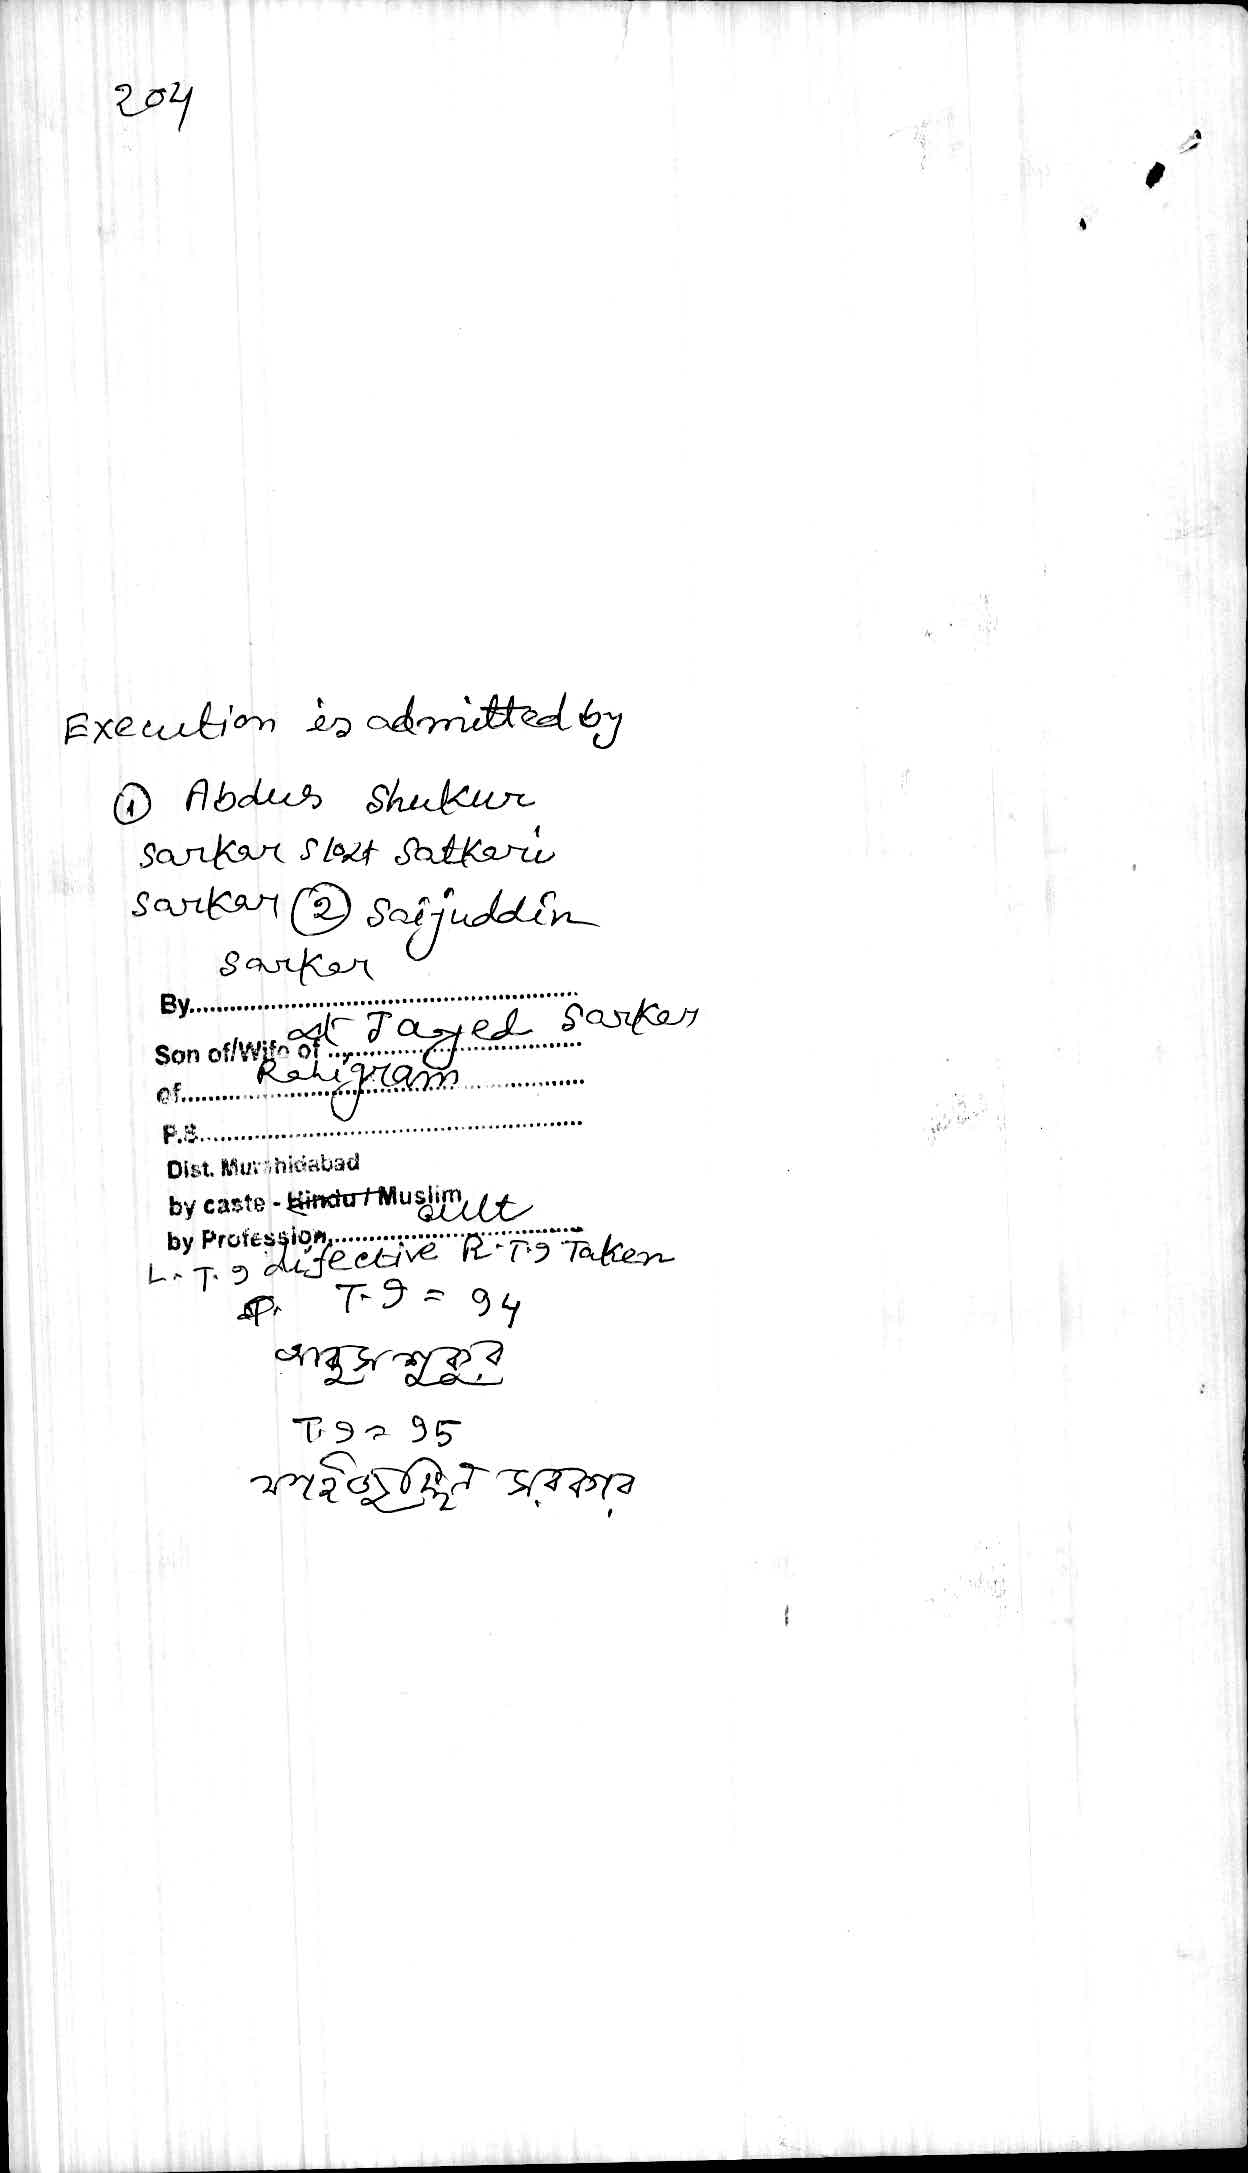 204
Execution is admitted by
① Abdus Shukur
Sarkar S/o Lt Satkari
Sarkar ② Saijuddin
Sarkar
By
Son of/Wife of Lt Jayed Sarkar
of Rahigram
P.S.
Dist. Murshidabad
by caste - Hindu / Muslim
by Profession cult
L.T.I difective R.T.I Taken
T.I = 94
আবদুস শুকুর
T.I = 95
সাইজুদ্দিন সরকার